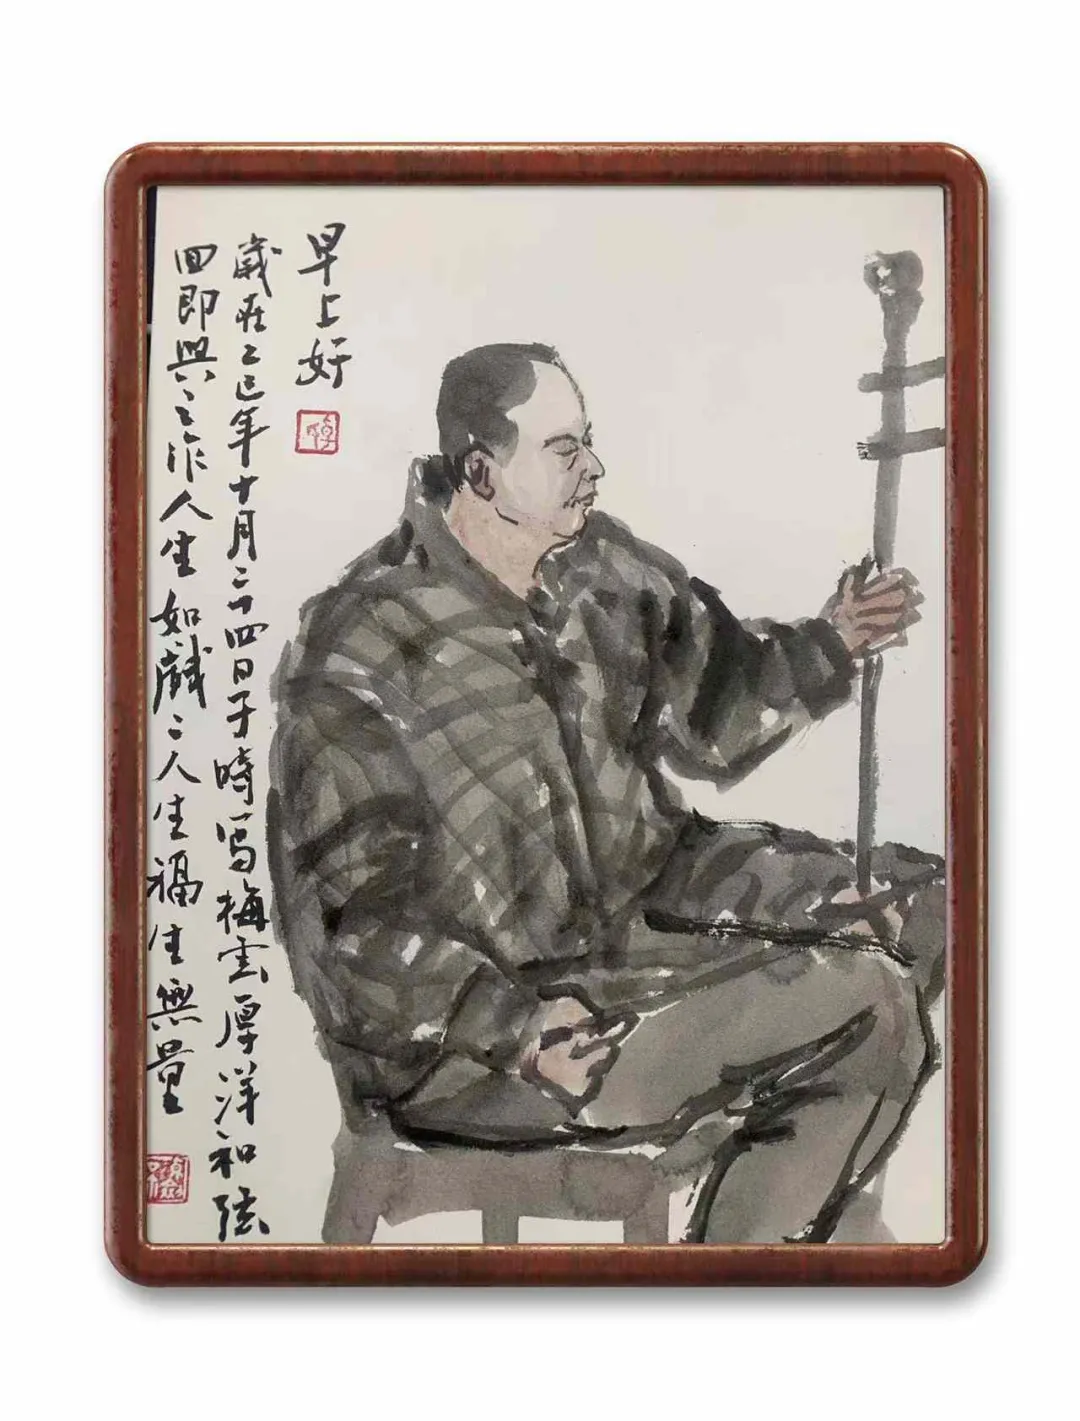 早上好
歲在乙巳年十月二十四日于時写梅雲厚洋和弦
即興之作人生如戲〻人生福生無量